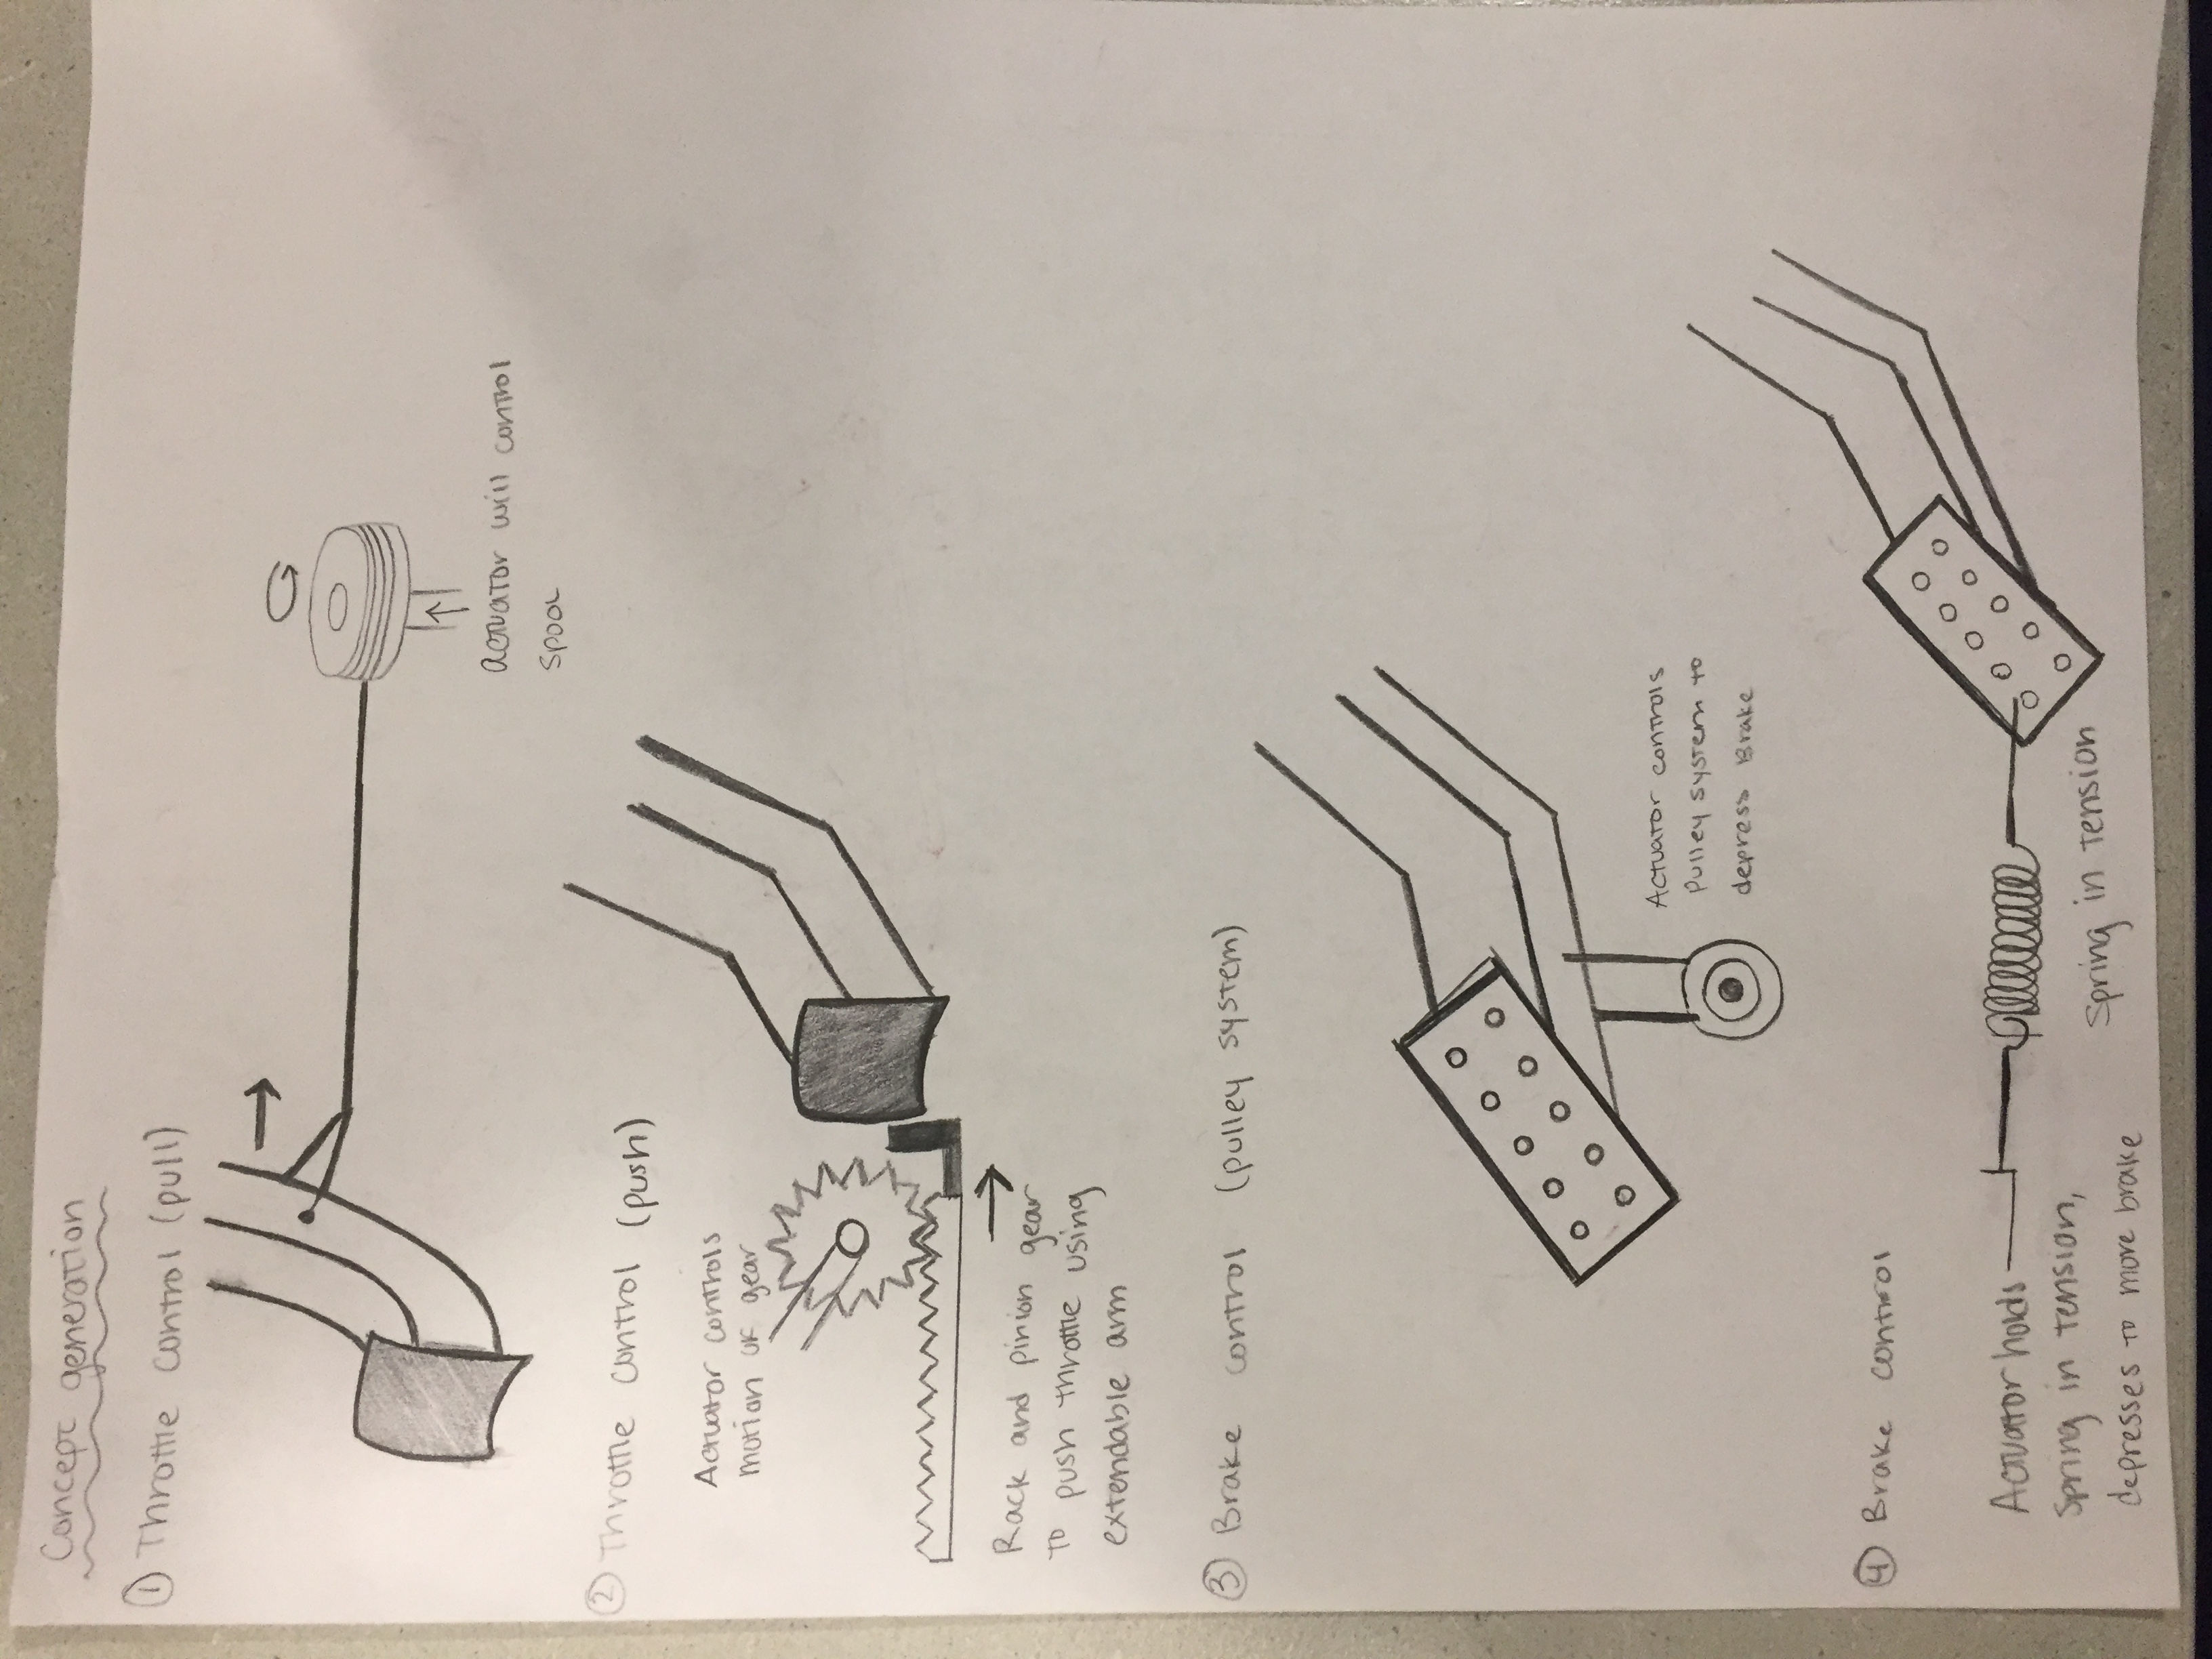 Concept generation
① Throttle control (pull)
actuator will control
spool
② Throttle control (push)
Actuator controls
motion of gear
Rack and pinion gear
to push throttle using
extendable arm
③ Brake control (pulley system)
Actuator controls
pulley system to
depress Brake
④ Brake control
Actuator holds
spring in tension,
depresses to more brake
Spring in tension